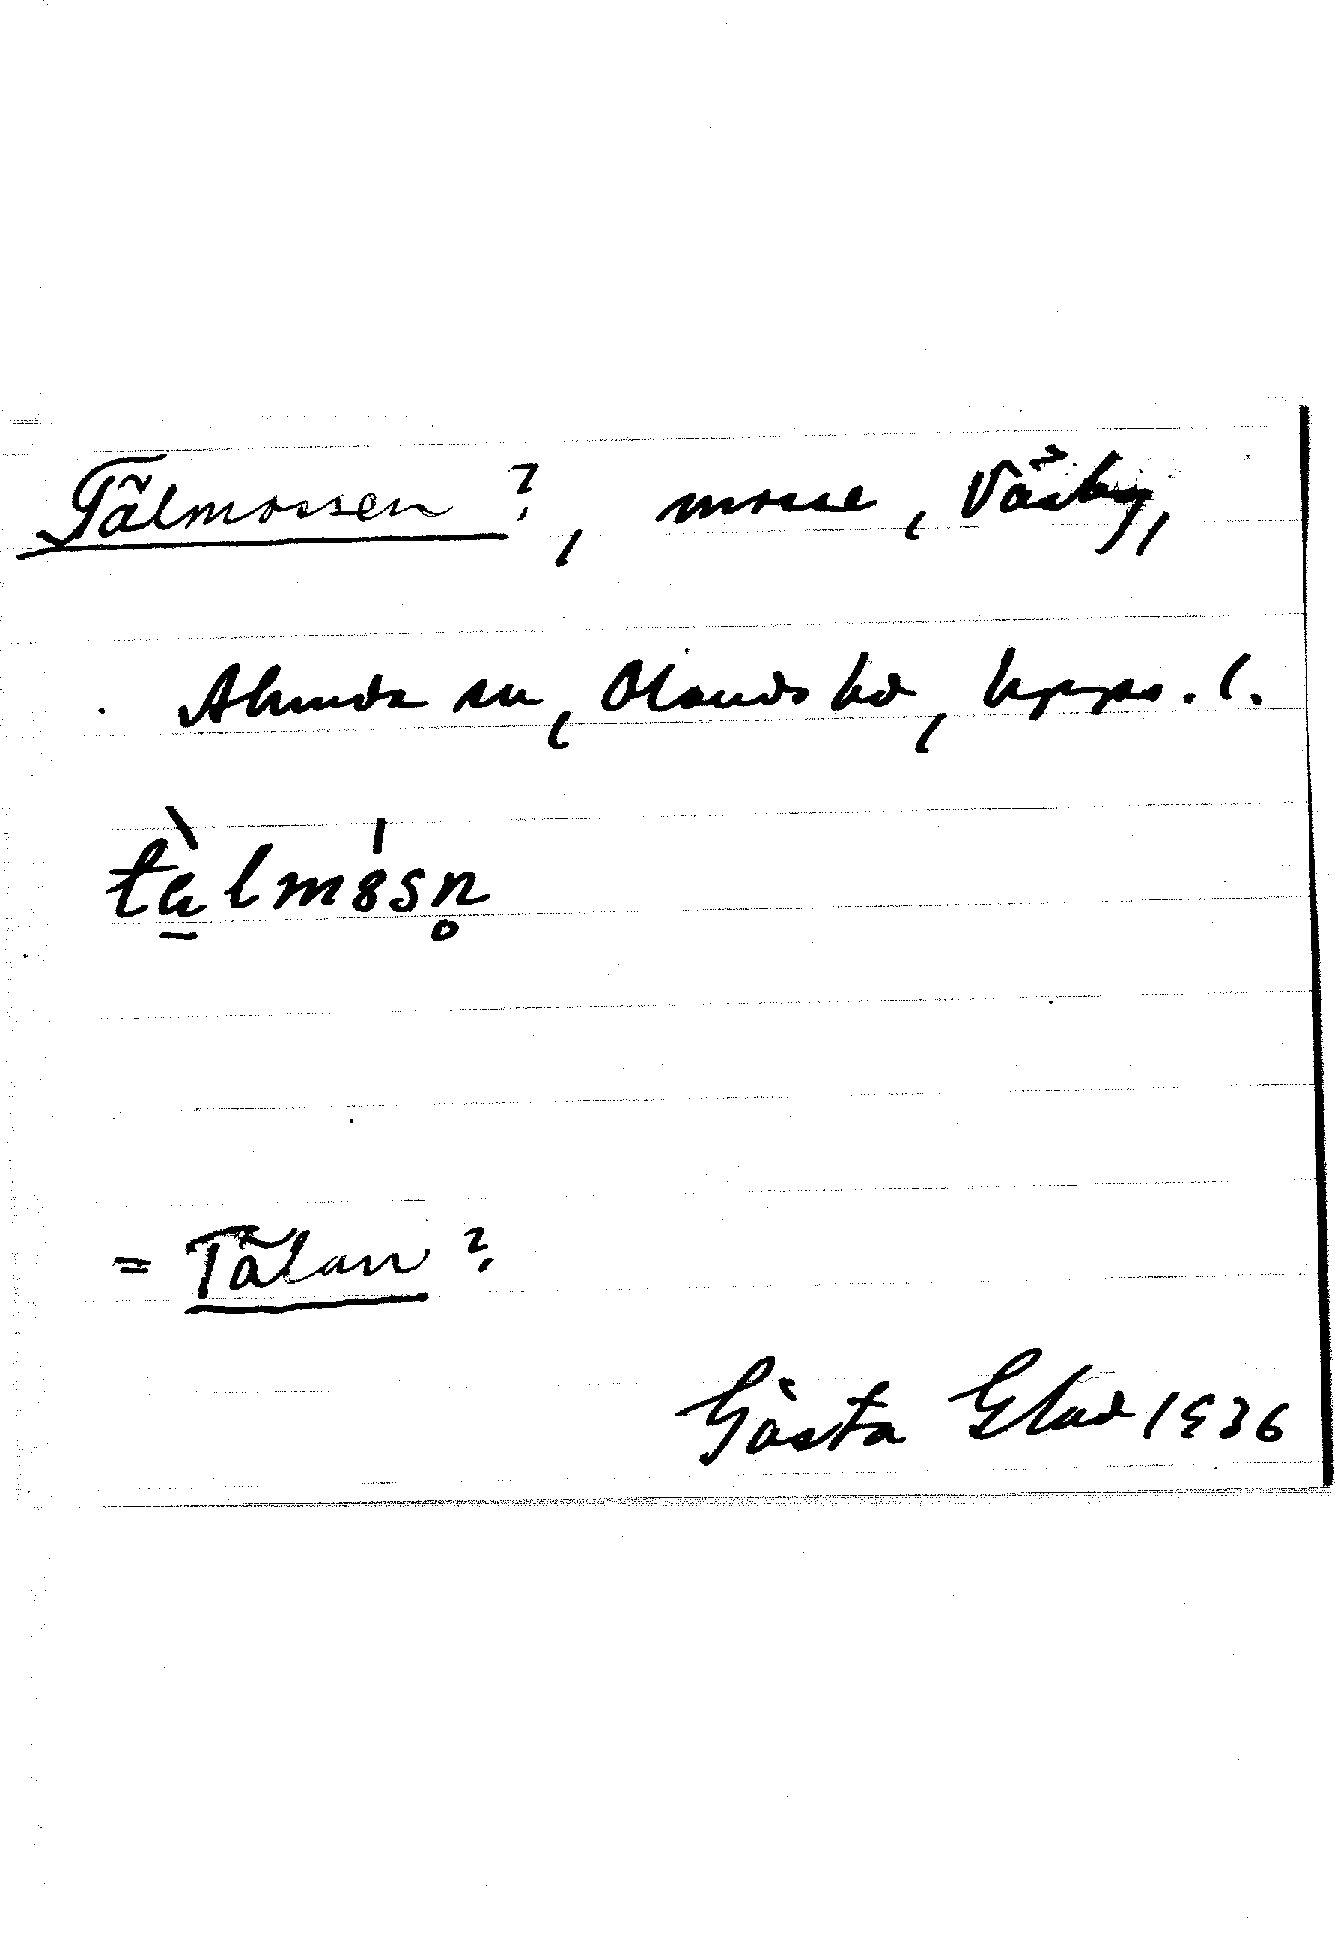 Tälmossen?, mosse, Väsby,
Alunda sn, Olands hd, Upps. l.
tὰ̱lmósn̥
= Tälan?
Gösta Elad 1936